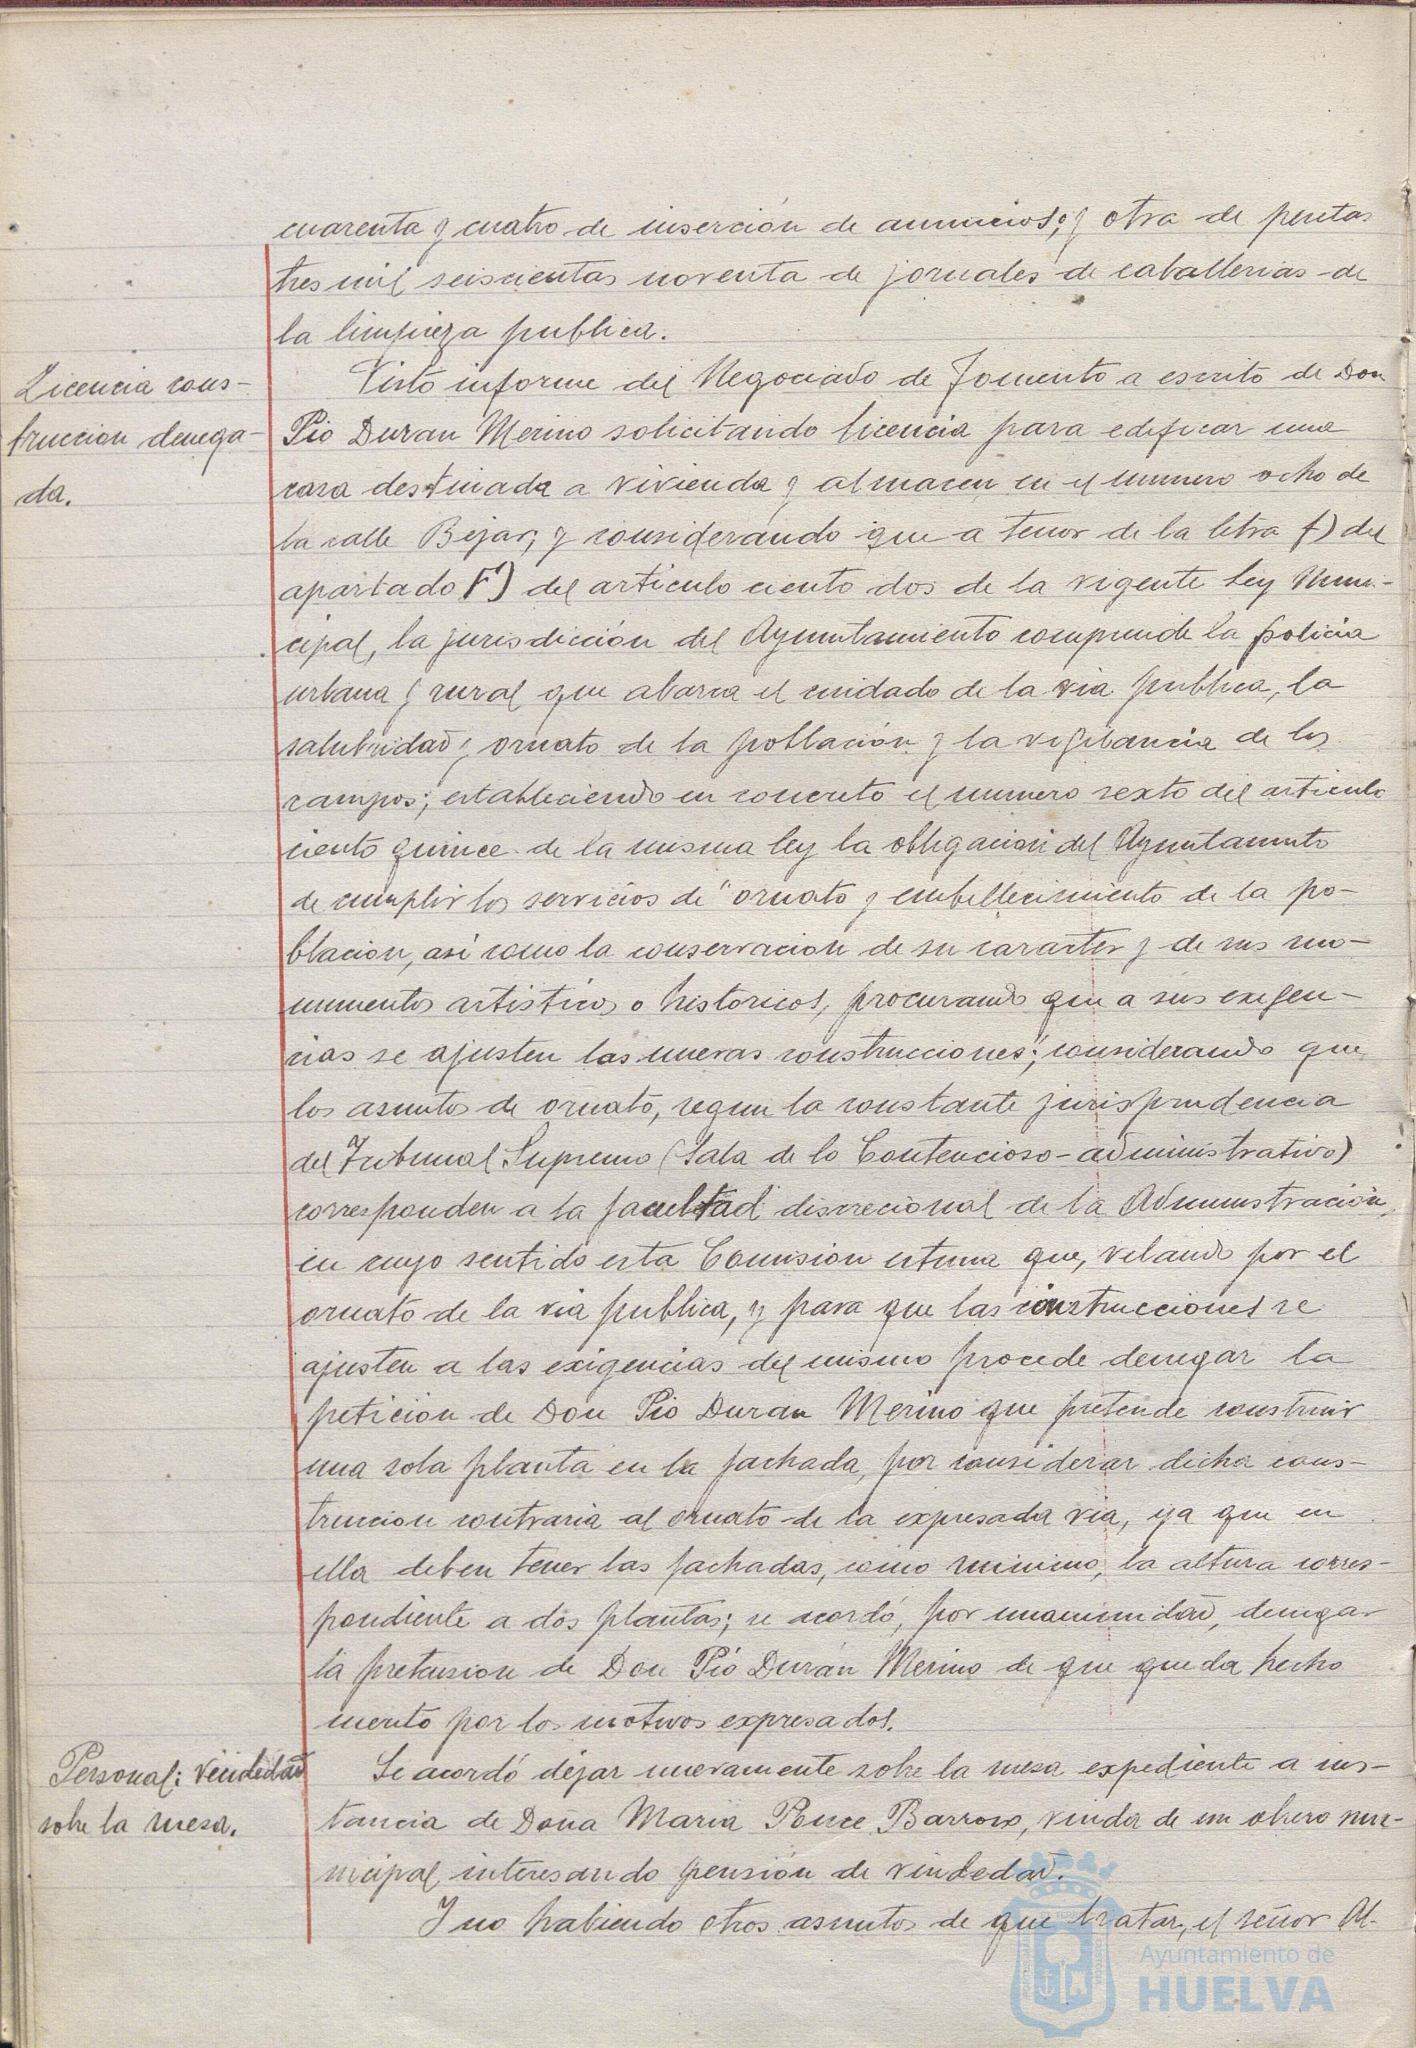 cuarenta y cuatro de inserción de anuncios; y otra de pesetas
tres mil seiscientas noventa de jornales de caballerias de
la limpieza publica.
Licencia cons-
truccion denega-
da.
Visto informe del Negociado de Fomento a escrito de Don
Pio Duran Merino solicitando licencia para edificar una
casa destinada a vivienda y almacen en el numero ocho de
la calle Bejar; y considerando que a tenor de la letra f) del
apartado F) del articulo ciento dos de la vigente Ley Muni-
cipal, la jurisdicción del Ayuntamiento comprende la policia
urbana y rural que abarca el cuidado de la via publica, la
salubridad y ornato de la población y la vigilancia de los
campos; estableciendo en concreto el numero sexto del articulo
ciento quince de la misma ley la obligación del Ayuntamiento
de cumplir los servicios de "ornato y embellecimiento de la po-
blacion, asi como la conservacion de su caracter y de sus mo-
numentos artisticos o historicos, procurando que a sus exigen-
cias se ajusten las nuevas construcciones"; considerando que
los asuntos de ornato, segun la constante jurisprudencia
del Tribunal Supremo (Sala de lo Contencioso-administrativo)
corresponden a la facultad discrecional de la Administración,
en cuyo sentido esta Comision estima que, velando por el
ornato de la via publica, y para que las construcciones se
ajusten a las exigencias del mismo procede denegar la
petición de Don Pio Duran Merino que pretende construir
una sola planta en la fachada, por considerar dicha cons-
truccion contraria al ornato de la expresada via, ya que en
ella deben tener las fachadas, como minimo, la altura corres-
pondiente a dos plantas; se acordó, por unanimidad, denegar
la pretension de Don Pio Durán Merino de que queda hecho
merito por los motivos expresados.
Personal: viudedad
sobre la mesa.
Se acordó dejar nuevamente sobre la mesa expediente a ins-
tancia de Doña Maria Ponce Barroso, viuda de un obrero mu-
nicipal interesando pensión de viudedad.
Y no habiendo otros asuntos de que tratar, el señor Al-
Ayuntamiento de
HUELVA